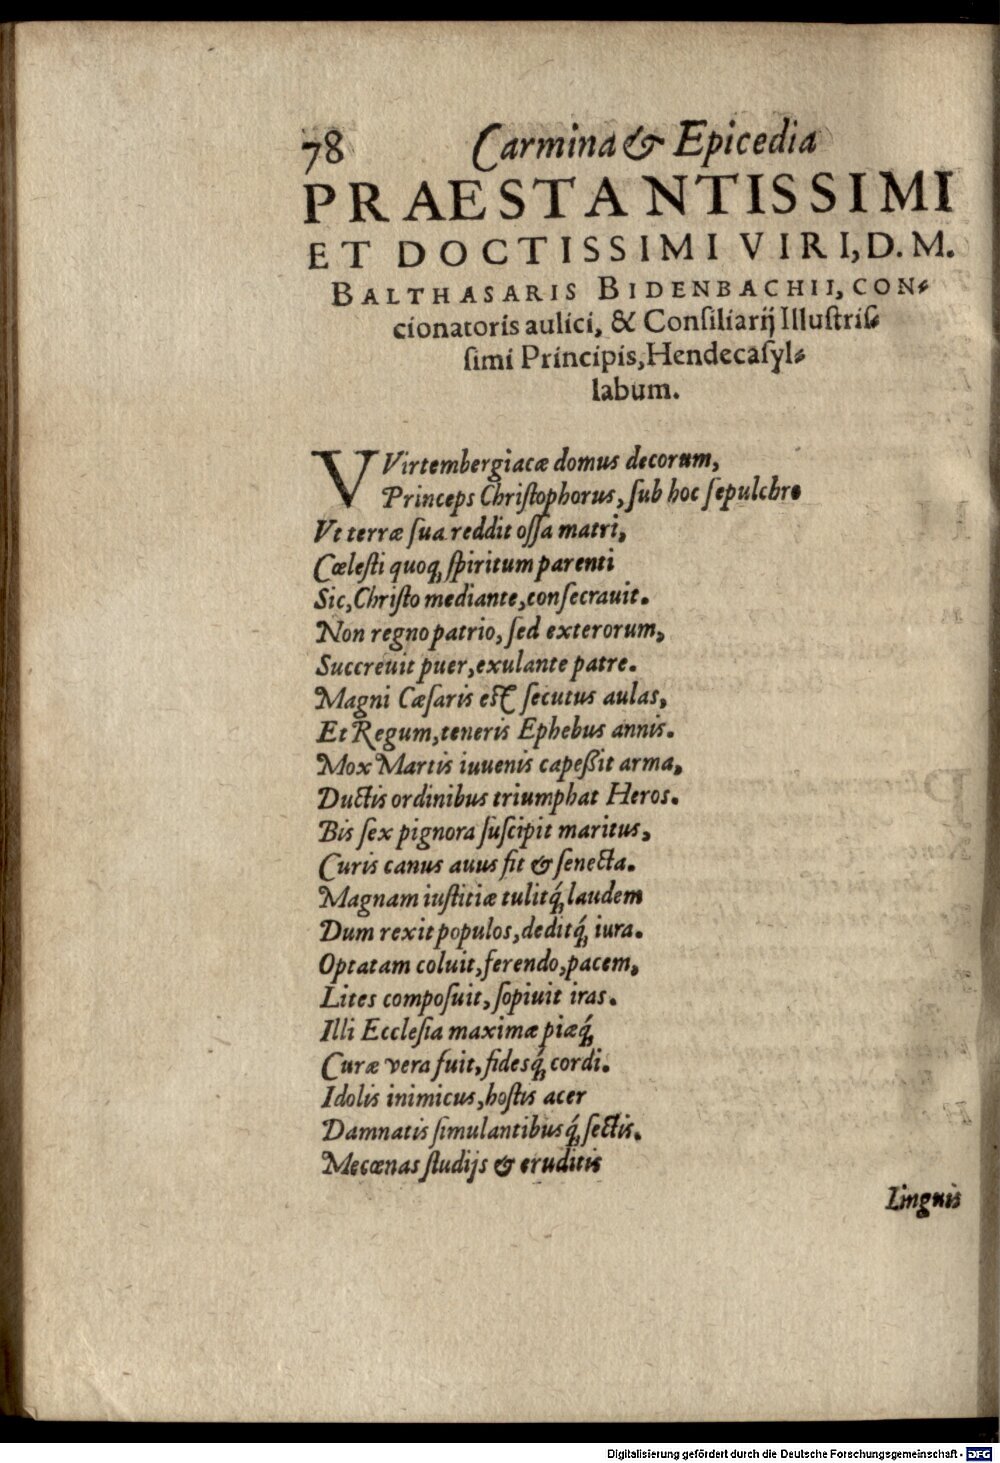 78 Carmina & Epicedia
PRAESTANTISSIMI
ET DOCTISSIMI VIRI, D. M.
BALTHASARIS BIDENBACHII, CON⸗
cionatoris aulici, & Consiliarij Illustriſ⸗
ſimi Principis, Hendecaſyl⸗
labum.
VVirtembergiacæ domus decorum,
Princeps Chriſtophorus, ſub hoc ſepulchro
Vt terræ ſua reddit oſſa matri,
Cœleſti quoq́; ſpiritum parenti
Sic, Chriſto mediante, conſecrauit.
Non regno patrio, ſed exterorum,
Succreuit puer, exulante patre.
Magni Cæſaris eſt ſecutus aulas,
Et Regum, teneris Ephebus annis.
Mox Martis iuuenis capeßit arma,
Ductis ordinibus triumphat Heros.
Bis ſex pignora ſuſcipit maritus,
Curis canus auus fit & ſenecta.
Magnam iuſtitiæ tulitq́; laudem
Dum rexit populos, deditq́; iura.
Optatam coluit, ferendo, pacem,
Lites compoſuit, ſopiuit iras.
Illi Eccleſia maximæ piæq́;
Curæ vera fuit, fidesq́; cordi.
Idolis inimicus, hoſtis acer
Damnatis ſimulantibusq́; ſectis.
Mecœnas ſtudijs & eruditis
Linguis
Digitalisierung gefördert durch die Deutsche Forschungsgemeinschaft - DFG